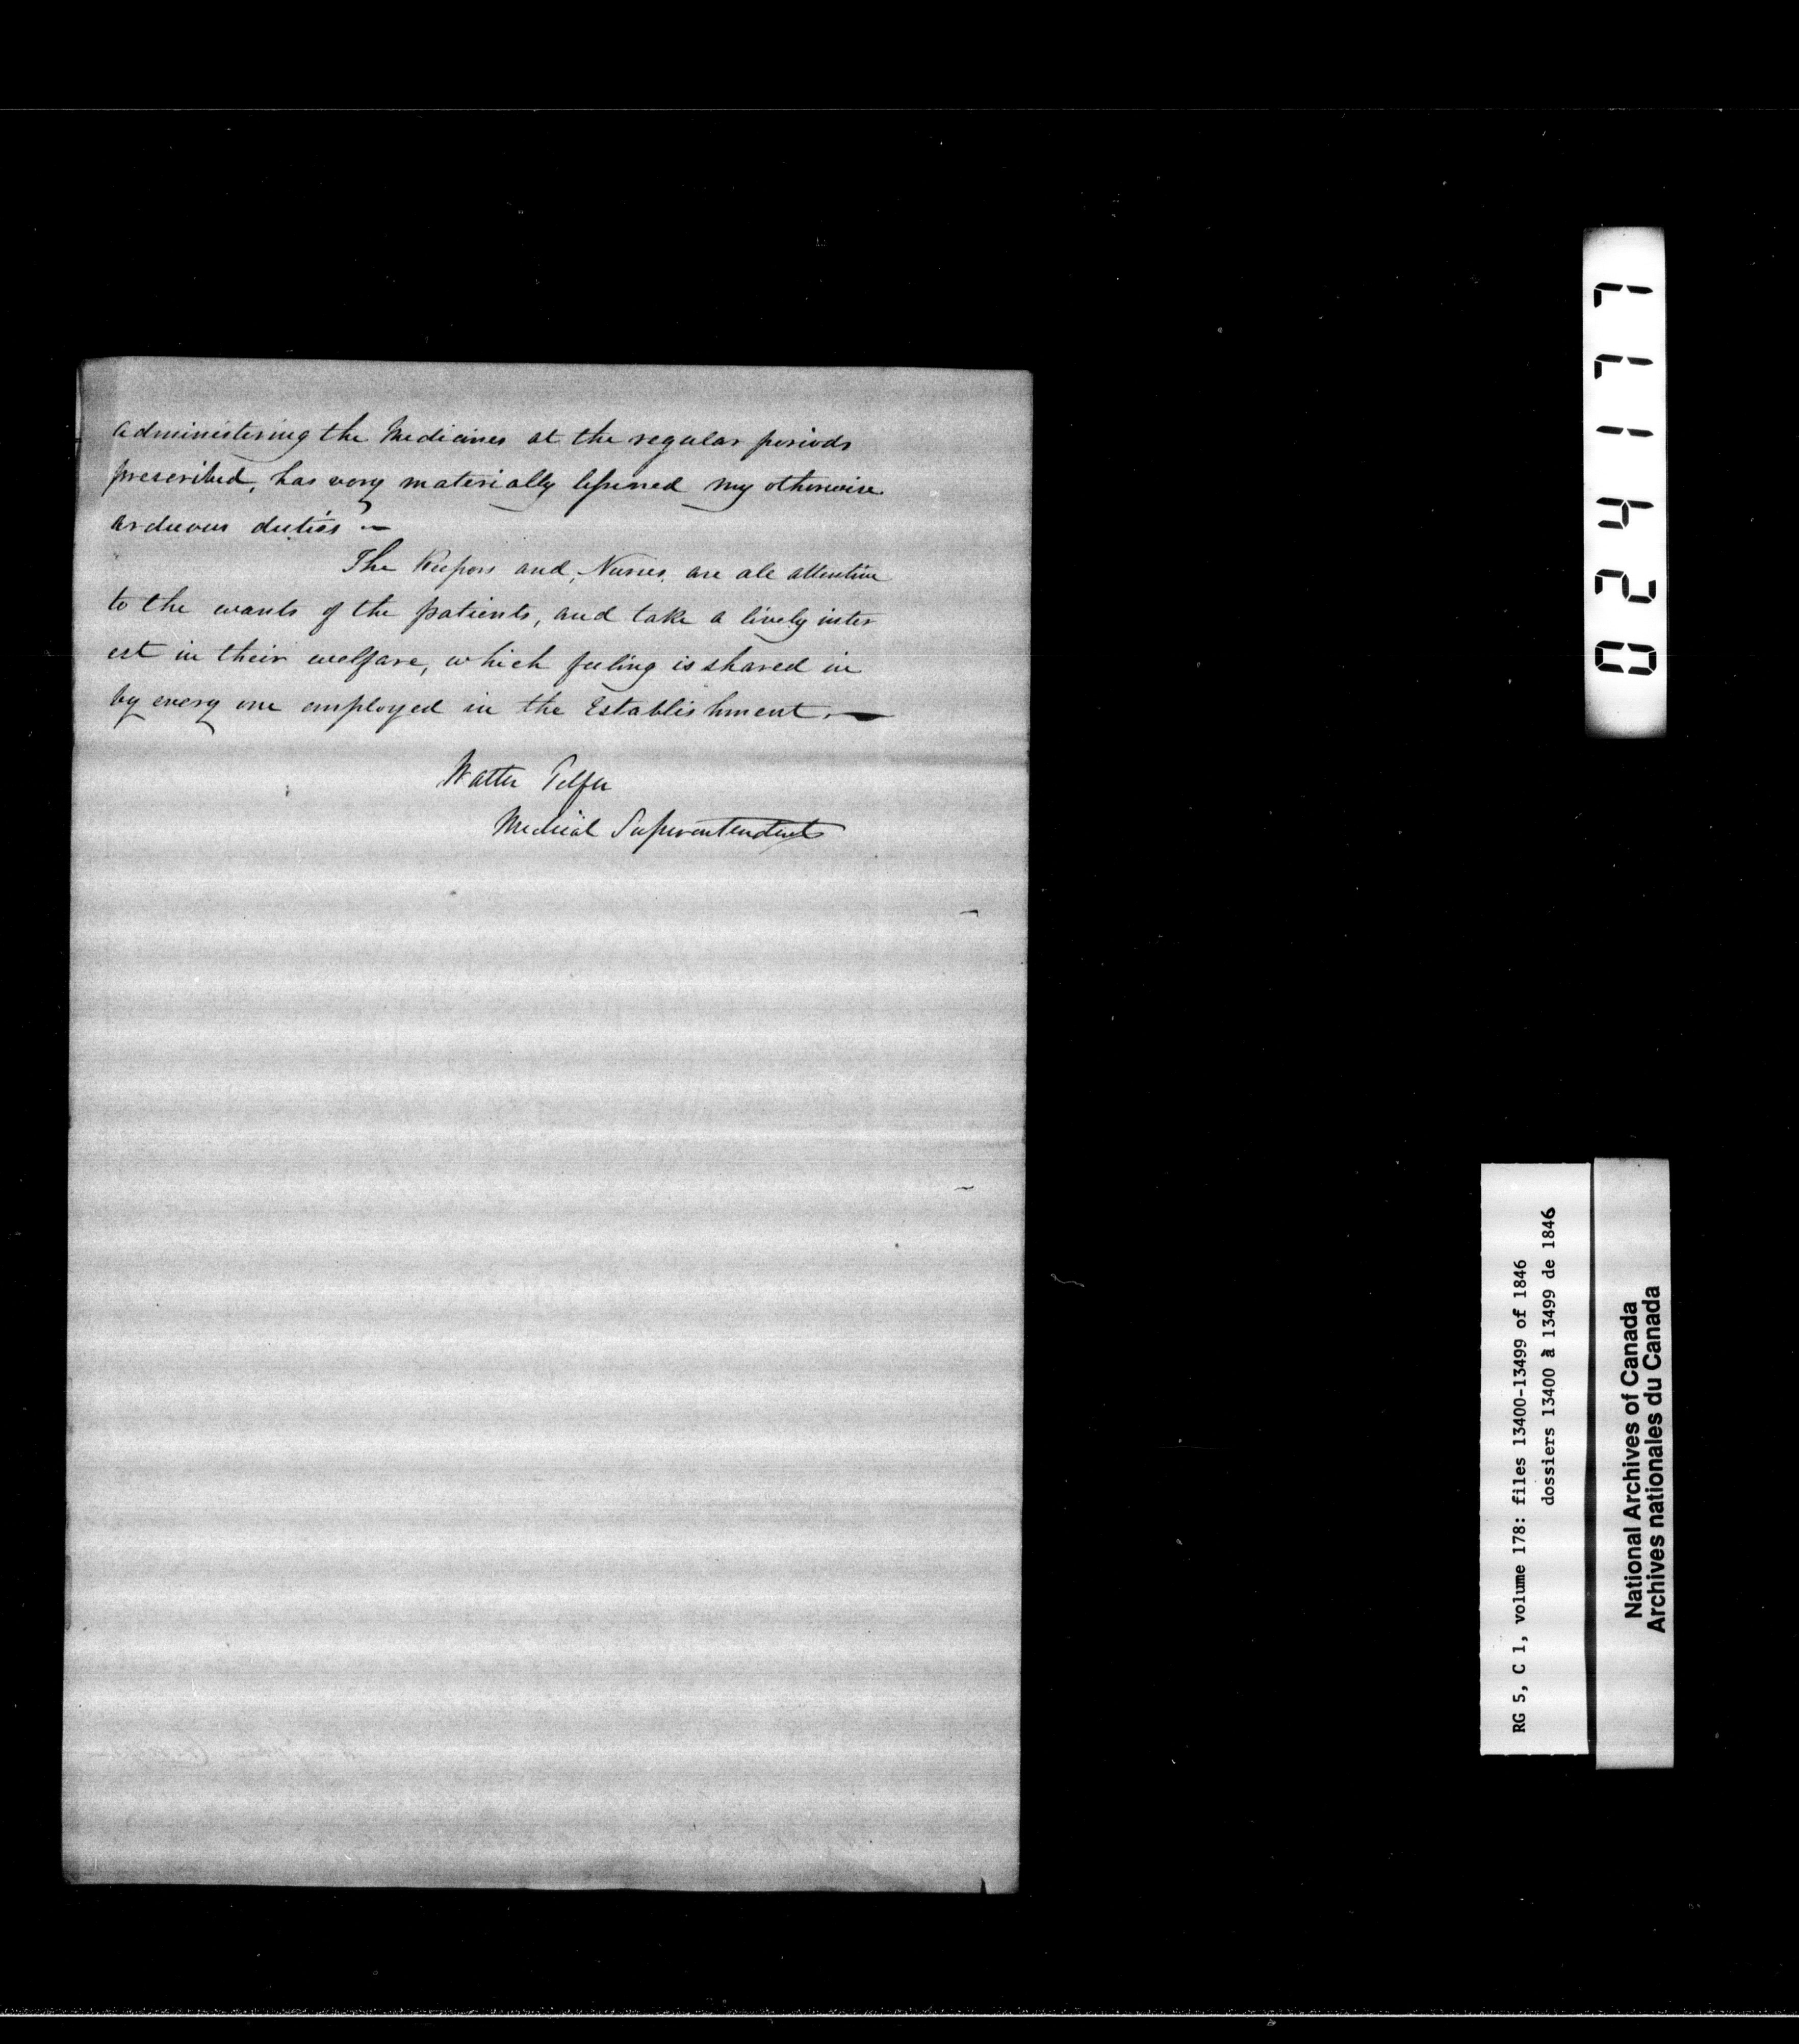 administering the Medicines at the regular periods
prescribed, has very materially lessened my otherwise
arduous duties —
The Keepers and, Nurses, are all attentive
to the wants of the patients, and take a lively inter
est in their welfare, which feeling is shared in
by every one employed in the Establishment. —
Walter Telfer
Medical Superentendent
024177
RG 5, C 1, volume 178: files 13400-13499 of 1846
dossiers 13400 à 13499 de 1846
National Archives of Canada
Archives nationales du Canada